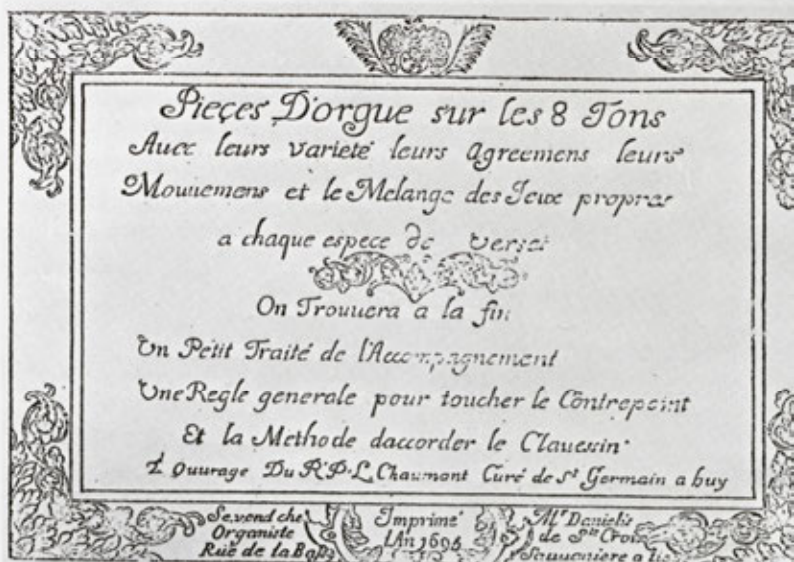 Pieçes D'orgue sur les 8 Tons
Auec leurs varieté leurs agreemens leurs
Mouuemens et le Melange des Jeux propres
a chaque espece de Verset
On Trouuera a la fin
Un Petit Traité de l'Accompagnement
Une Regle generale pour toucher le Contrepoint
Et la Methode daccorder le Clauessin
Ouurage Du R.P.L. Chaumont Curé de St Germain a huy
Se vend che
Organiste
Rue de la
Imprimé
LAn 1695
Mr Danielis
de Ste Croi
Sauueniere a